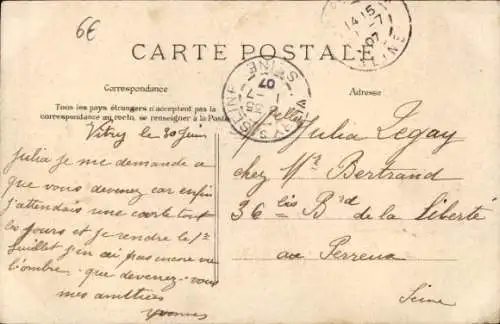 6€
14 15
1-7
07
SEINE
CARTE POSTALE
Correspondance
Tous les pays étrangers n'acceptent pas la
correspondance au recto, se renseigner à la Poste
VITRY S/ SEINE
SEINE
07
Adresse
Vitry le 30 Juin
Julia je me demande a
que vous devenez car enfin
j'attendais une carte tout
les jours et je rendre le 1e
Juillet j'en ai pas encore vu
l'ombre. que devenez-vous
mes amitiées
Yvonne
Melle
Julia Legay
chez Mr Bertrand
36 bis Bd de la Liberté
au Perreux
Seine